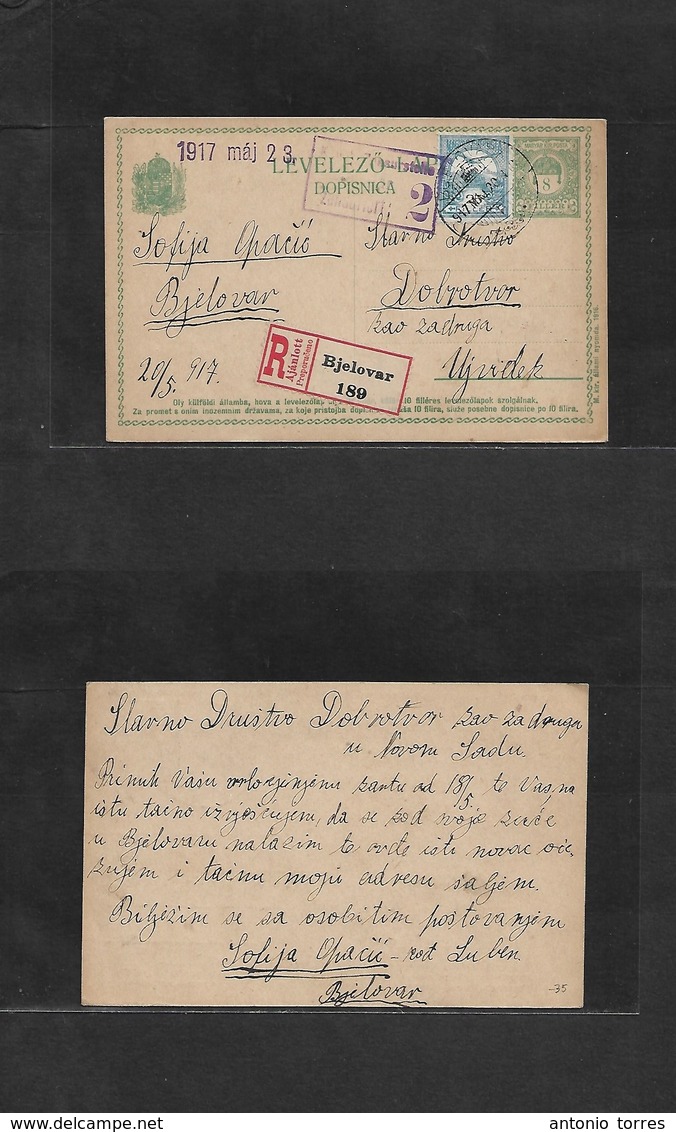 1917 máj 23.
LEVELEZŐ-LAP
DOPISNICA
2
8
Sofija Opačić
Bjelovar
20/5. 917.
Slavno Društvo
Dobrotvor
kao zadruga
Ujvidek
R
Ajánlott
Preporučeno
Bjelovar
189
Oly külföldi államba, hova a levelezőlap 10 filléres levelezőlapok szolgálnak.
Za promet s onim inozemnim državama, za koje pristojba 10 filira, služe posebne dopisnice po 10 filira.
M. kir. állami nyomda. 1916.
Slavno Društvo Dobrotvor kao zadruga
u Novom Sadu.
Primih Vašu kartu od 18/5. te Vas na
istu tačno izvješćujem, da se kod svoje kuće
u Bjelovaru nalazim te ovde isti novac oče-
kujem i tačnu moju adresu šaljem.
Bilježim se sa osobitim poštovanjem
Sofija Opačić - rođ
Bjelovar
-35
delcampe.net
antonio torres